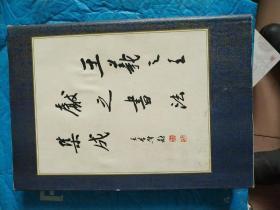 王羲之王
獻之書法
集成